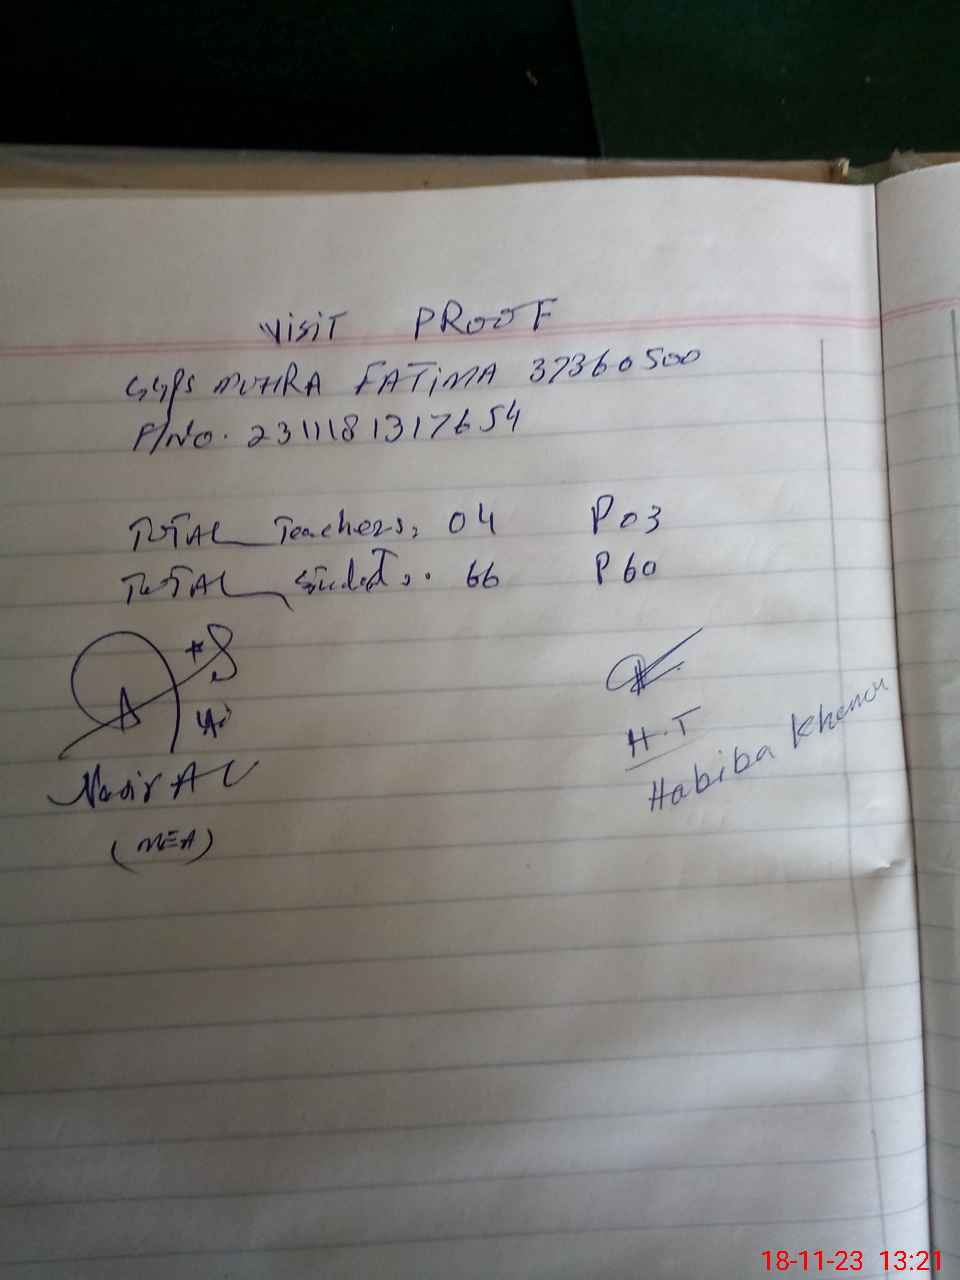 Visit PROOF
GGPS MOHRA FATIMA 37360500
P/No. 2311181317654
TOTAL Teachers, 04 P 03
TOTAL Students. 66 P 60
H.T
Habiba Khanam
Nasir Ali
(MEA)
18-11-23 13:21